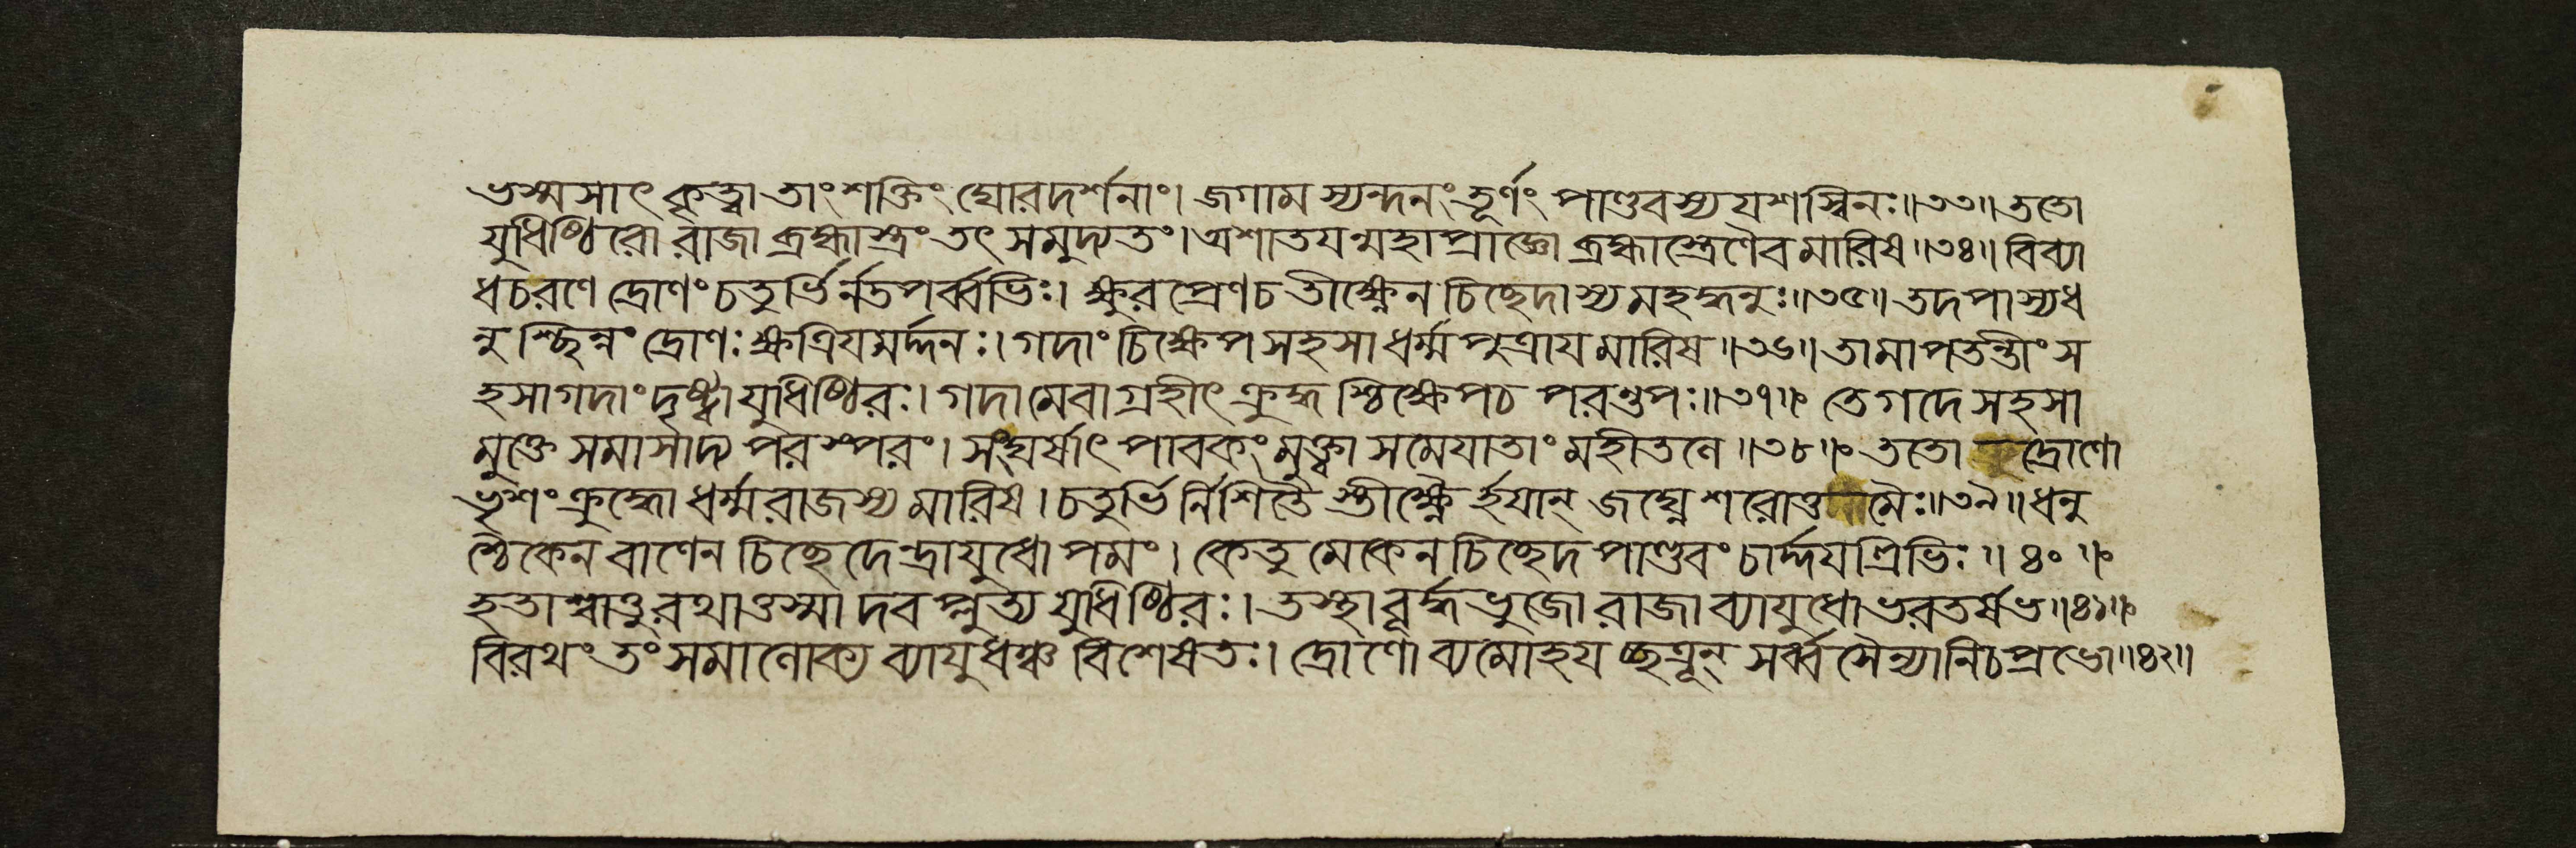 ভস্মসাৎ কৃত্বা তাং শক্তিং ঘোরদর্শনাং। জগাম স্যন্দনং তূর্ণং পাণ্ডবস্য যশস্বিনঃ॥৩৩॥ ততো
যুধিষ্ঠিরো রাজা ব্রহ্মাস্ত্রং তৎ সমুদ্যতং। অশাতযন্মহাপ্রাজ্ঞো ব্রহ্মাস্ত্রেণৈব মারিষ॥৩৪॥ বিব্যা
ধ চ রণে দ্রোণং চতুর্ভির্নতপর্ব্বভিঃ। ক্ষুরপ্রেণ চ তীক্ষ্ণেন চিচ্ছেদাস্য মহদ্ধনুঃ॥৩৫॥ তদপাস্য ধ
নুশ্ছিন্নং দ্রোণঃ ক্ষত্রিযমর্দ্দনঃ। গদাং চিক্ষেপ সহসা ধর্ম্মপুত্রায মারিষ॥৩৬॥ তামাপতন্তীং স
হসা গদাং দৃষ্ট্বা যুধিষ্ঠিরঃ। গদামেবাগ্রহীৎ ক্রুদ্ধশ্চিক্ষেপ চ পরন্তপঃ॥৩৭॥ তে গদে সহসা
মুক্তে সমাসাদ্য পরস্পরং। সংঘর্ষাৎ পাবকং মুক্ত্বা সমেযাতাং মহীতলে॥৩৮॥ ততো দ্রোণো
ভৃশং ক্রুদ্ধো ধর্ম্মরাজস্য মারিষ। চতুর্ভির্নিশিতৈস্তীক্ষ্ণৈর্হযান্ জঘ্নে শরোত্তমৈঃ॥৩৯॥ ধনু
শ্চৈকেন বাণেন চিচ্ছেদেন্দ্রাযুধোপমং। কেতুমেকেন চিচ্ছেদ পাণ্ডবং চার্দ্দযত্রিভিঃ॥৪০॥
হতাশ্বাত্তু রথাত্তস্মাদবপ্লুত্য যুধিষ্ঠিরঃ। তস্থাবূর্দ্ধভুজো রাজা ব্যাযুধো ভরতর্ষভ॥৪১॥
বিরথং তং সমালোক্য ব্যাযুধঞ্চ বিশেষতঃ। দ্রোণো ব্যমোহযচ্ছত্রূন্ সর্ব্বসৈন্যানি চ প্রভো॥৪২॥